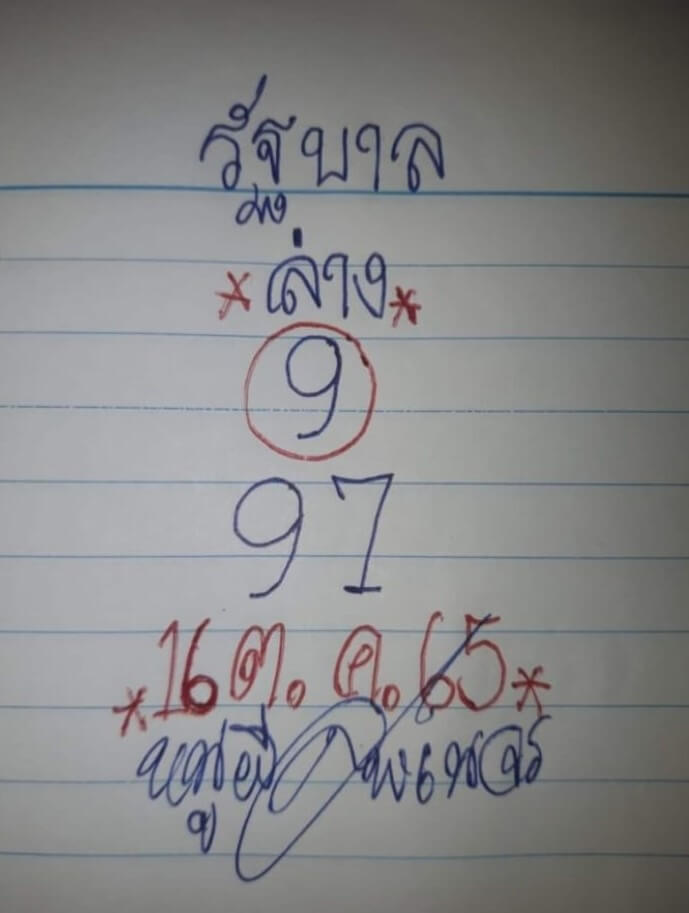 รัฐบาล
*ล่าง*
9
97
*16 ต.ค.65*